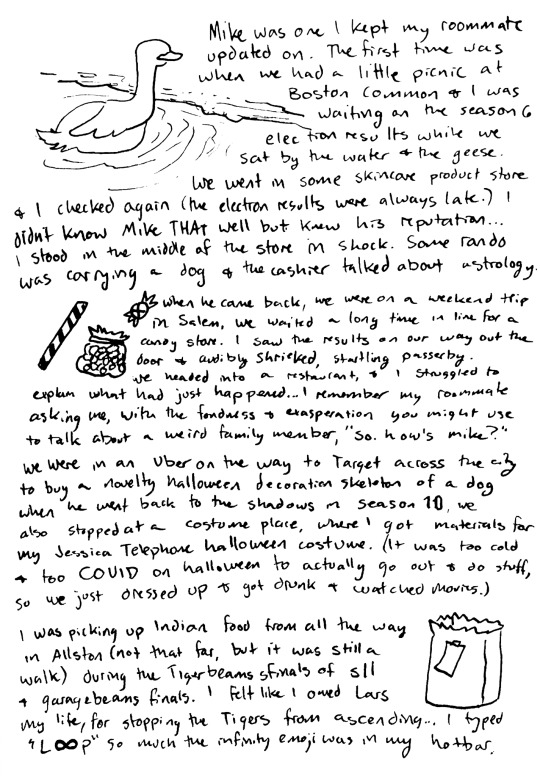 Mike was one I kept my roommate
updated on. The first time was
when we had a little picnic at
Boston Common & I was
waiting on the season 6
election results while we
sat by the water & the geese.
We went in some skincare product store
& I checked again (the election results were always late.) I
didn't know Mike THAT well but knew his reputation...
I stood in the middle of the store in shock. Some rando
was carrying a dog & the cashier talked about astrology.
when he came back, we were on a weekend trip
in Salem, we waited a long time in line for a
candy store. I saw the results on our way out the
door & audibly shrieked, startling passerby.
we headed into a restaurant, & I struggled to
explain what had just happened... I remember my roommate
asking me, with the fondness & exasperation you might use
to talk about a weird family member, "So. how's mike?"
we were in an Uber on the way to Target across the city
to buy a novelty halloween decoration skeleton of a dog
when he went back to the shadows in season 10, we
also stopped at a costume place, where I got materials for
my Jessica Telephone halloween costume. (It was too cold
& too COVID on halloween to actually go out & do stuff,
so we just dressed up & got drunk & watched movies.)
I was picking up Indian food from all the way
in Allston (not that far, but it was still a
walk) during the Tigerbeams sfinals of s11
& garagebeams finals. I felt like I owed Lars
my life, for stopping the Tigers from ascending... I typed
"L∞p" so much the infinity emoji was in my hotbar.